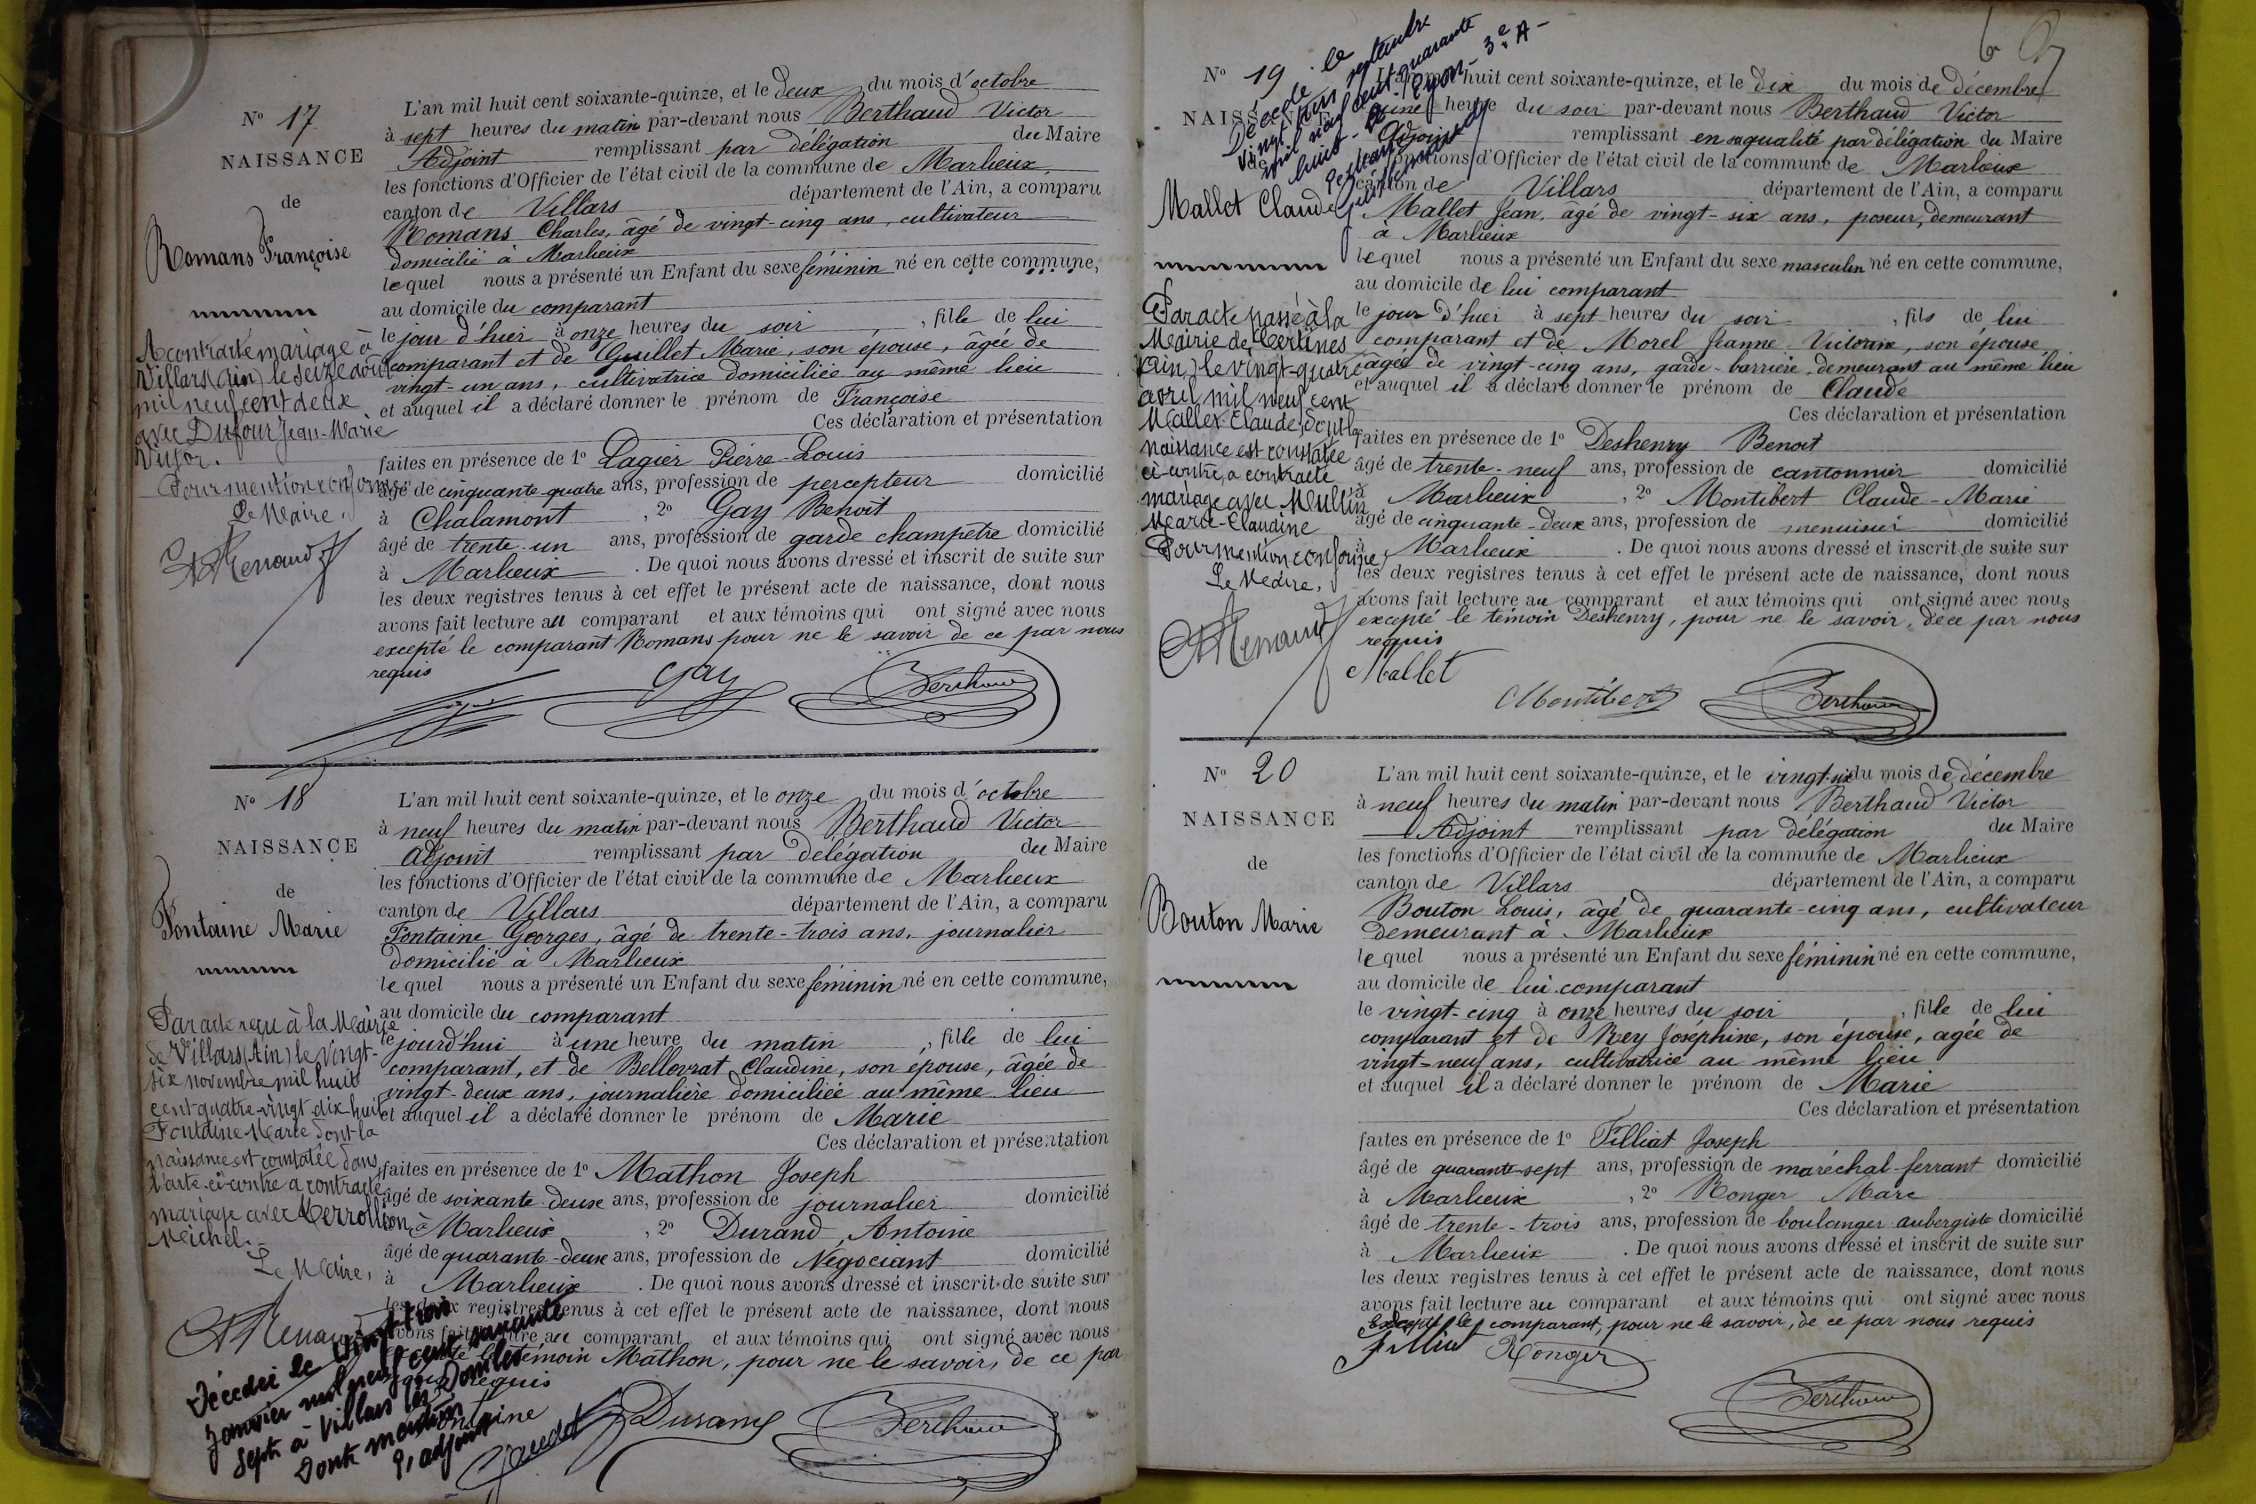 N° 17
NAISSANCE
de
Romans Françoise
A contracté mariage à
Villars (Ain) le seize août
mil neuf cent deux
avec Dufour Jean-Marie
Victor.
Pour mention conforme
Le Maire,
ARenaud
L'an mil huit cent soixante-quinze, et le deux du mois d'octobre
à sept heures du matin par-devant nous Berthaud Victor
Adjoint remplissant par délégation du Maire
les fonctions d'Officier de l'état civil de la commune de Marlieux,
canton de Villars département de l'Ain, a comparu
Romans Charles, âgé de vingt-cinq ans, cultivateur
domicilié à Marlieux
lequel nous a présenté un Enfant du sexe féminin né en cette commune,
au domicile du comparant
le jour d'hier à onze heures du soir, fille de lui
comparant et de Guillet Marie, son épouse, âgée de
vingt-un ans, cultivatrice domiciliée au même lieu
et auquel il a déclaré donner le prénom de Françoise
Ces déclaration et présentation
faites en présence de 1° Lagier Pierre-Louis
âgé de cinquante-quatre ans, profession de percepteur domicilié
à Chalamont, 2° Gay Benoît
âgé de trente-un ans, profession de garde champêtre domicilié
à Marlieux. De quoi nous avons dressé et inscrit de suite sur
les deux registres tenus à cet effet le présent acte de naissance, dont nous
avons fait lecture au comparant et aux témoins qui ont signé avec nous
excepté le comparant Romans pour ne le savoir de ce par nous
requis
Gay Berthaud
N° 18
NAISSANCE
de
Fontaine Marie
Par acte reçu à la Mairie
de Villars (Ain) le vingt-
six novembre mil huit
cent quatre-vingt dix-huit
Fontaine Marie dont la
naissance est constatée dans
l'acte ci-contre a contracté
mariage avec
Michel.
Le Maire,
ARenaud
Décédée le vingt-trois
janvier mil neuf cent soixante
sept à Villars les Dombes
Dont mention
L'adjoint
L'an mil huit cent soixante-quinze, et le onze du mois d'octobre
à neuf heures du matin par-devant nous Berthaud Victor
Adjoint remplissant par délégation du Maire
les fonctions d'Officier de l'état civil de la commune de Marlieux
canton de Villars département de l'Ain, a comparu
Fontaine Georges, âgé de trente-trois ans, journalier
domicilié à Marlieux
lequel nous a présenté un Enfant du sexe féminin né en cette commune,
au domicile du comparant
le jourd'hui à une heure du matin, fille de lui
comparant, et de Bellovrat Claudine, son épouse, âgée de
vingt-deux ans, journalière domiciliée au même lieu
et auquel il a déclaré donner le prénom de Marie
Ces déclaration et présentation
faites en présence de 1° Mathon Joseph
âgé de soixante-deux ans, profession de journalier domicilié
à Marlieux, 2° Durand, Antoine
âgé de quarante-deux ans, profession de Négociant domicilié
à Marlieux. De quoi nous avons dressé et inscrit de suite sur
les deux registres tenus à cet effet le présent acte de naissance, dont nous
avons fait lecture au comparant et aux témoins qui ont signé avec nous
excepté le témoin Mathon, pour ne le savoir, de ce par
nous requis
Fontaine Durand Berthaud
N° 19
NAISSANCE
Mallet Claude
Décédé le
vingt trois septembre
mil neuf cent quarante
huit à Lyon 3e A
Par acte passé à la
Mairie de Certines
(Ain) le vingt-quatre
avril mil neuf cent
Mallet Claude dont la
naissance est constatée
ci-contre, a contracté
mariage avec Meullin
Marie-Claudine
Pour mention conforme
Le Maire,
ARenaud
L'an mil huit cent soixante-quinze, et le dix du mois de décembre
à une heure du soir par-devant nous Berthaud Victor
Adjoint remplissant en sa qualité par délégation du Maire
les fonctions d'Officier de l'état civil de la commune de Marlieux
canton de Villars département de l'Ain, a comparu
Mallet Jean, âgé de vingt-six ans, poseur, demeurant
à Marlieux
lequel nous a présenté un Enfant du sexe masculin né en cette commune,
au domicile de lui comparant
le jour d'hier à sept heures du soir, fils de lui
comparant et de Morel Jeanne Victorine, son épouse,
âgée de vingt-cinq ans, garde-barrière, demeurant au même lieu
et auquel il a déclaré donner le prénom de Claude
Ces déclaration et présentation
faites en présence de 1° Deshenry Benoit
âgé de trente-neuf ans, profession de cantonnier domicilié
à Marlieux, 2° Montibert Claude-Marie
âgé de cinquante-deux ans, profession de menuisier domicilié
à Marlieux. De quoi nous avons dressé et inscrit de suite sur
les deux registres tenus à cet effet le présent acte de naissance, dont nous
avons fait lecture au comparant et aux témoins qui ont signé avec nous
excepté le témoin Deshenry, pour ne le savoir, de ce par nous
requis
Mallet
Montibert Berthaud
N° 20
NAISSANCE
de
Bouton Marie
L'an mil huit cent soixante-quinze, et le vingt-six du mois de décembre
à neuf heures du matin par-devant nous Berthaud Victor
Adjoint remplissant par délégation du Maire
les fonctions d'Officier de l'état civil de la commune de Marlieux
canton de Villars département de l'Ain, a comparu
Bouton Louis, âgé de quarante-cinq ans, cultivateur
demeurant à Marlieux
lequel nous a présenté un Enfant du sexe féminin né en cette commune,
au domicile de lui comparant
le vingt-cinq à onze heures du soir, fille de lui
comparant et de Rey Joséphine, son épouse, agée de
vingt-neuf ans, cultivatrice au même lieu
et auquel il a déclaré donner le prénom de Marie
Ces déclaration et présentation
faites en présence de 1° Filliat Joseph
âgé de quarante-sept ans, profession de maréchal-ferrant domicilié
à Marlieux, 2° Ronger Marc
âgé de trente-trois ans, profession de boulanger aubergiste domicilié
à Marlieux. De quoi nous avons dressé et inscrit de suite sur
les deux registres tenus à cet effet le présent acte de naissance, dont nous
avons fait lecture au comparant et aux témoins qui ont signé avec nous
excepté le comparant, pour ne le savoir, de ce par nous requis
Filliat Ronger
Berthaud